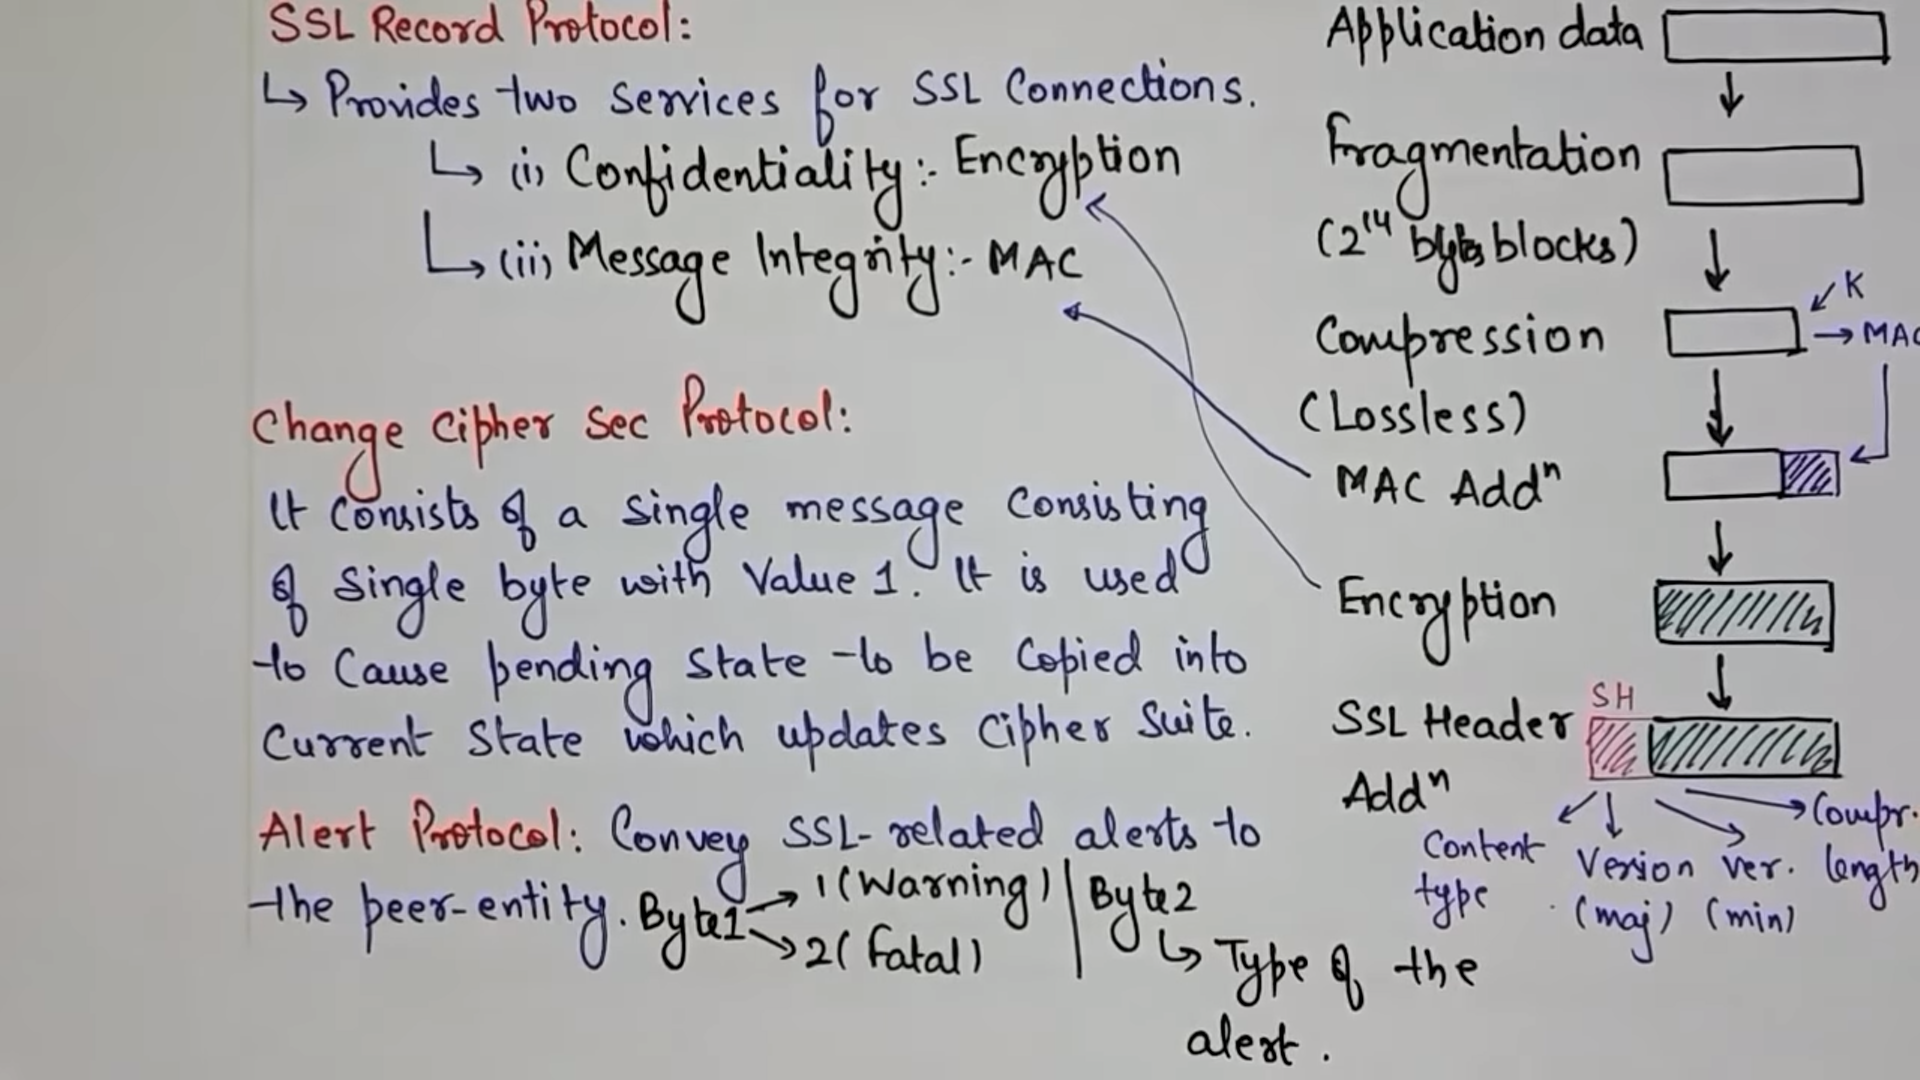 SSL Record Protocol:
↳ Provides two services for SSL Connections.
↳ (i) Confidentiality:- Encryption
↳ (ii) Message Integrity:- MAC
Change Cipher Sec Protocol:
It Consists of a single message consisting
of single byte with Value 1. It is used
to Cause pending state to be Copied into
Current State which updates Cipher Suite.
Alert Protocol: Convey SSL-related alerts to
the peer-entity. Byte1 → 1 (Warning) | Byte2
→ 2 (fatal)
↳ Type of the
alert.
Application data
Fragmentation
(2¹⁴ bytes blocks)
K
Compression → MAC
(Lossless)
MAC Addⁿ
Encryption
SH
SSL Header
Addⁿ
Content type
Version (maj)
ver. (min)
Compr. length